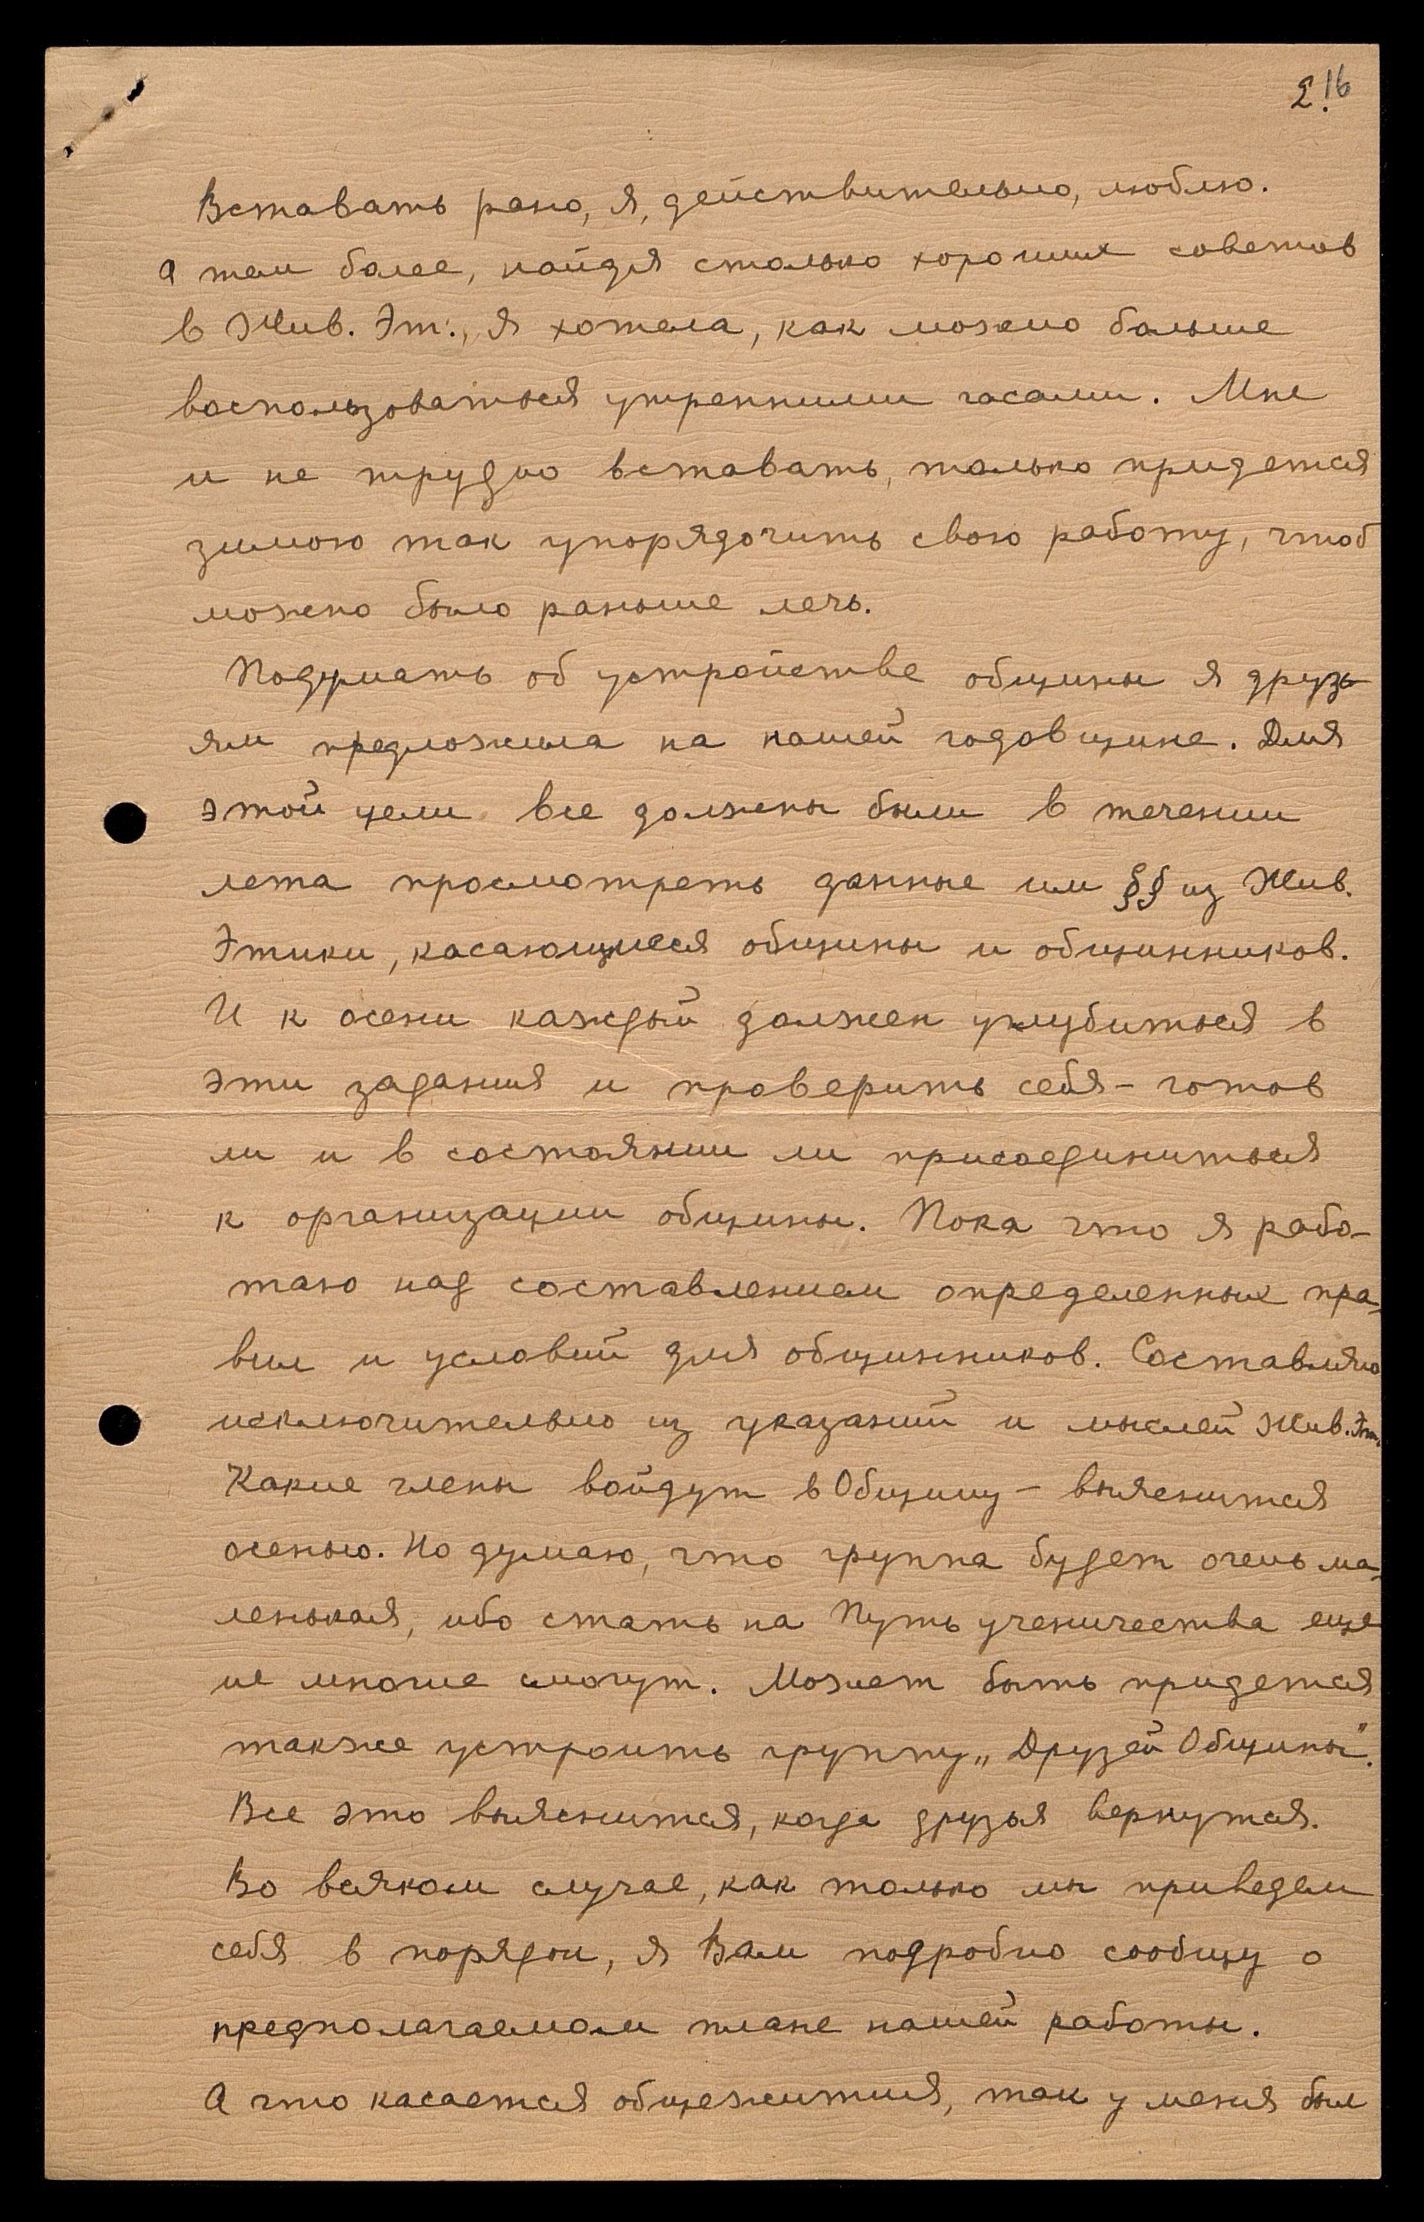 2.16
Вставать рано, я, действительно, люблю.
А тем более, найдя столько хороших советов
в Жив. Эт., я хотела, как можно больше
воспользоваться утренними часами. Мне
и не трудно вставать, только придется
зимою так упорядочить свою работу, чтоб
можно было раньше лечь.
Подумать об устройстве общины я друзь-
ям предложила на нашей годовщине. Для
этой цели все должны были в течении
лета просмотреть данные им §§ из Жив.
Этики, касающиеся общины и общинников.
И к осени каждый должен углубиться в
эти задания и проверить себя – готов
ли и в состоянии ли присоединиться
к организации общины. Пока что я рабо-
таю над составлением определенных пра-
вил и условий для общинников. Составляю
исключительно из указаний и мыслей Жив. Эт.
Какие члены войдут в Общину – выяснится
осенью. Но думаю, что группа будет очень ма-
ленькая, ибо стать на Путь ученичества еще
не многие смогут. Может быть придется
также устроить группу „Друзей Общины".
Все это выяснится, когда друзья вернутся.
Во всяком случае, как только мы приведем
себя в порядок, я Вам подробно сообщу о
предполагаемом плане нашей работы.
А что касается общежития, так у меня был